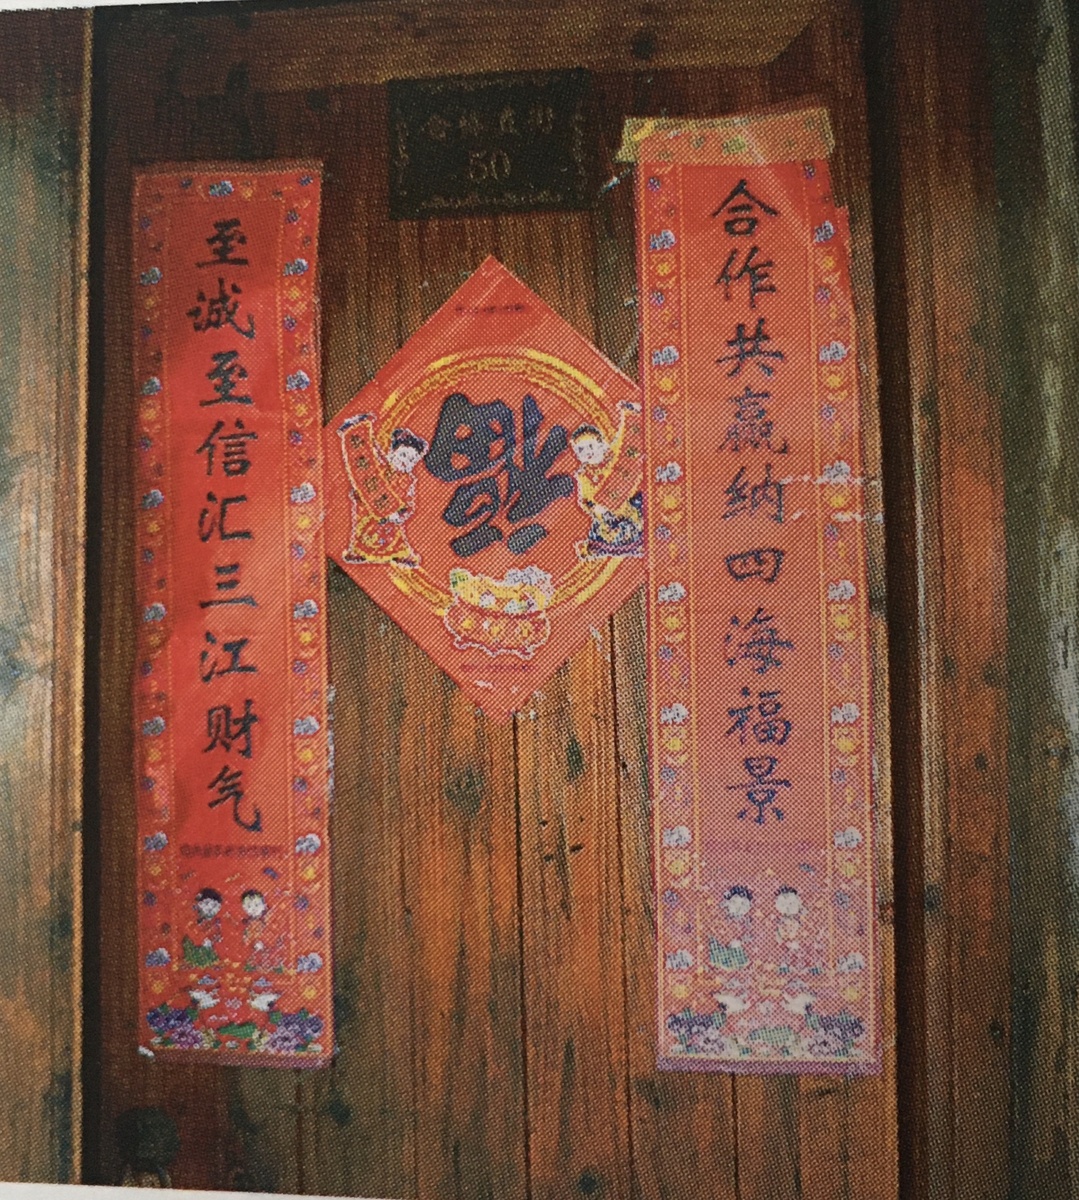 50
合作共赢纳四海福景
福
至诚至信汇三江财气